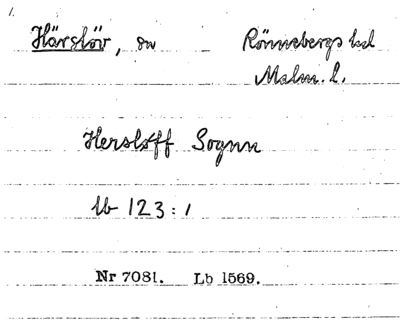 1.
Härslöv, sn Rönnebergs hd
Malm. l.
Hersløff Sognn
lb 123:1
Nr 7081. Lb 1569.